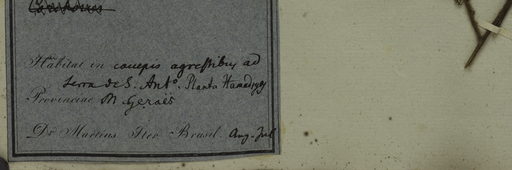 Habitat in campis agrestibus ad
Serra de S. Antº. Planta
Provinciae M. Geraës
Dr Martius Iter Brasil. Aug-Jul